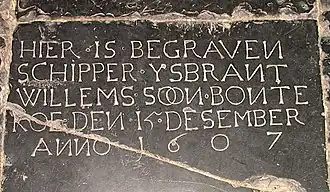 HIER · IS · BEGRAVEN
SCHIPPER · YSBRANT
WILLEMS · SOON · BONTE
KOE DEN 15 · DESEMBER
ANNO 1607